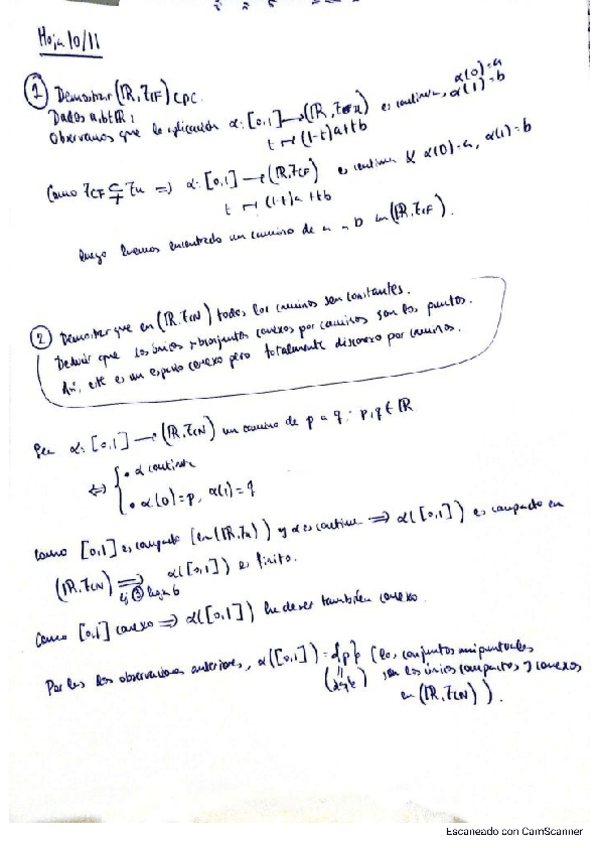 Hoja 10/11
① Demostrar (ℝ, τ_CF) CPC.
Dados a, b ∈ ℝ:
Observamos que la aplicación α: [0,1] → (ℝ, τ_u) es continua, α(0)=a α(1)=b
t ↦ (1-t)a+tb
Como τ_CF ⊊ τ_u ⇒ α: [0,1] → (ℝ, τ_CF) es continua y α(0)=a, α(1)=b
t ↦ (1-t)a+tb
luego hemos encontrado un camino de a a b en (ℝ, τ_CF).
② Demostrar que en (ℝ, τ_CN) todos los caminos son constantes.
Deducir que los únicos subconjuntos conexos por caminos son los puntos.
Así, este es un espacio conexo pero totalmente disconexo por caminos.
Sea α: [0,1] → (ℝ, τ_CN) un camino de p a q: p, q ∈ ℝ
⇔ { • α continua
• α(0)=p, α(1)=q
Como [0,1] es compacto (en (ℝ, τ_u)) y α es continua ⇒ α([0,1]) es compacto en
(ℝ, τ_CN) ⇒ α([0,1]) es finito.
Ej ③ hoja 6
Como [0,1] conexo ⇒ α([0,1]) ha de ser también conexo.
Por las dos observaciones anteriores, α([0,1]) = {p} (los conjuntos unipuntuales
{q} son los únicos compactos y conexos
en (ℝ, τ_CN)).
Escaneado con CamScanner